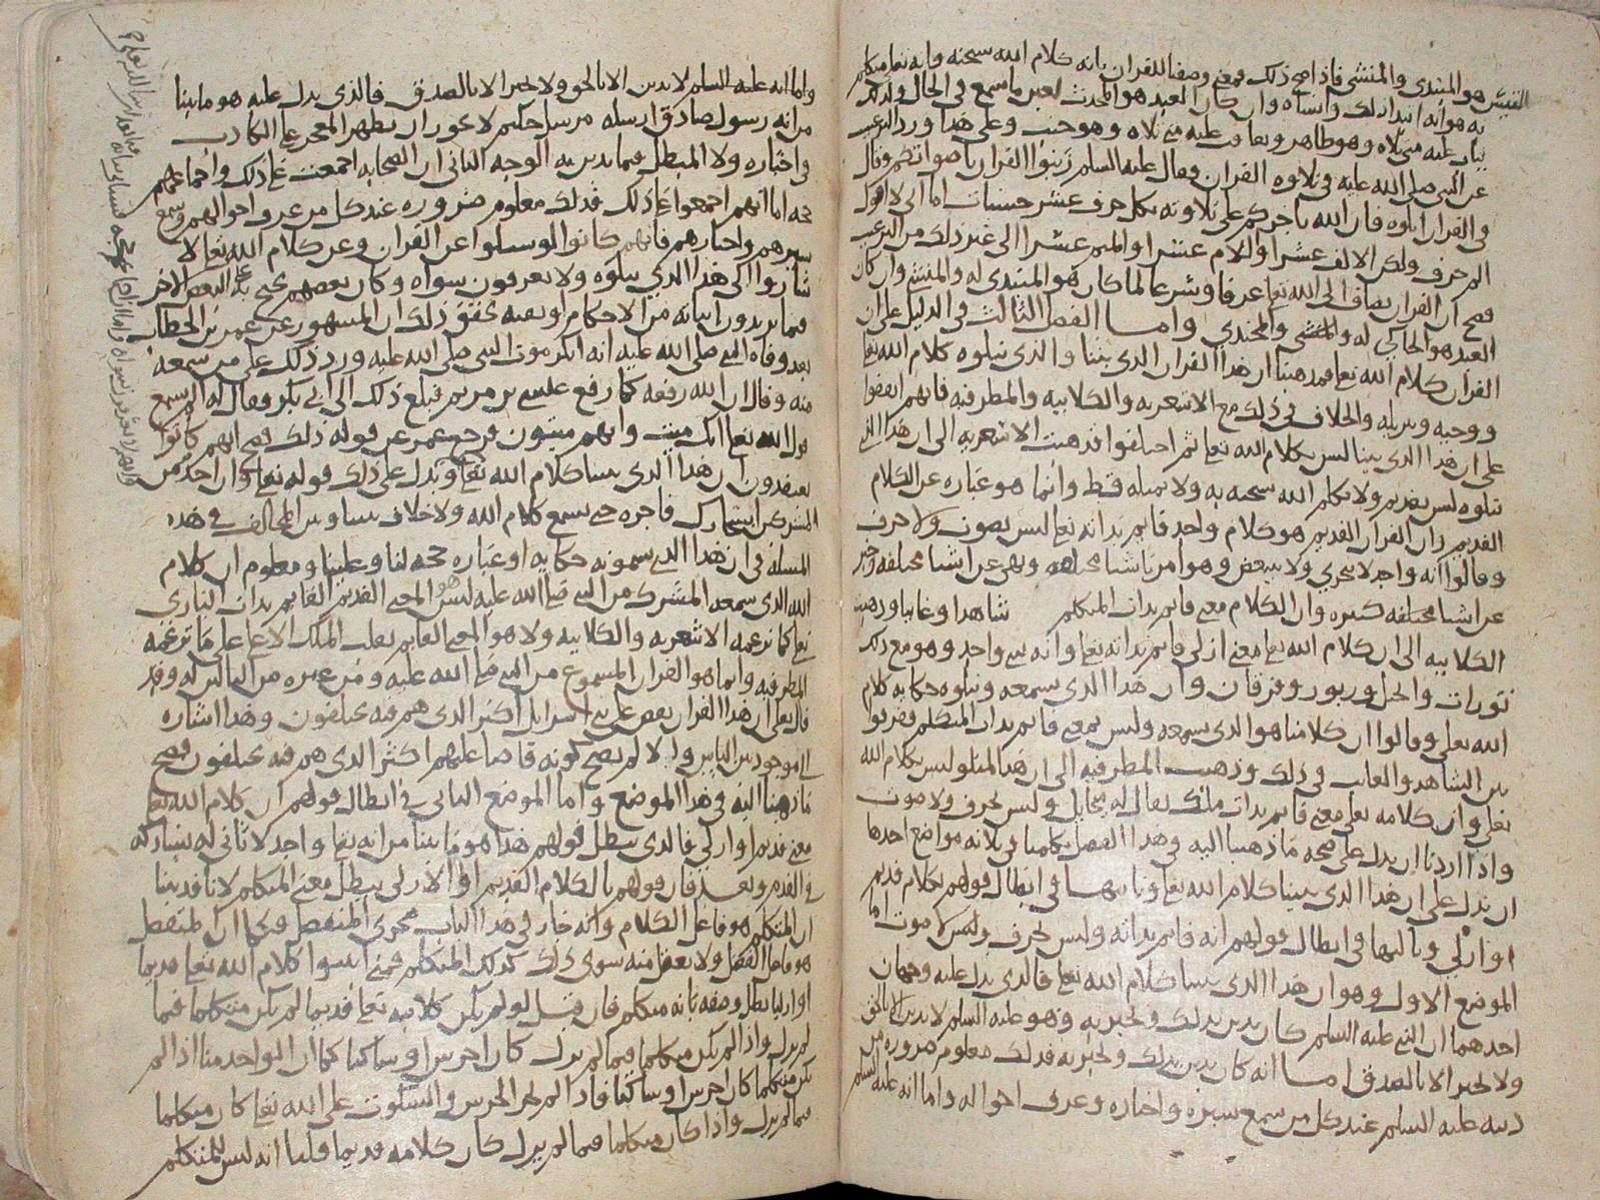 هو المبتدي والمنشي فاذا صح ذلك فمعنى وصفنا للقران بانه كلام الله سبحنه وانه تعا متكلم
به هو انه ابتدا ذلك وانشاه وان كان العبد هو المحدث لعين ما سمع في الحال ولذلك
يثاب عليه متى تلاه وهو طاهر ويعاقب عليه متى تلاه وهو جنب وعلى هذا ورد الترغيب
عن النبي صلى الله عليه في تلاوه القران فقال عليه السلم زينوا القران باصواتكم وقال
في القران اتلوه فان الله ياجركم على تلاوته بكل حرف عشر حسنات اما اني لا اقول
الم حرف ولكن الالف عشرا واللام عشرا والميم عشرا الى غير ذلك من الترغيب
فصح ان القران يضاف الى الله تعا عرفا وشرعا لما كان هو المبتدي له والمنشي وان كان
العبد هو الحاكي له والمحتدي واما الفصل الثالث في الدليل على ان
القران كلام الله تعا فمذهبنا ان هذا القران الذي بيننا والذي نتلوه كلام الله تعا
ووحيه وتنزيله والخلاف في ذلك مع الاشعريه والكلابيه والمطرفيه فانهم اتفقوا
على ان هذا الذي بيننا ليس بكلام الله تعا ثم اختلفوا فذهبت الاشعريه الى ان هذا الذي
نتلوه ليس بقديم ولا تكلم الله سبحنه به ولا بمثله قط وانما هو عباره عن الكلام
القديم وان القران القديم هو كلام واحد قايم بذاته تعا ليس بصوت ولا حرف
وقالوا انه واحد لا يتجزى ولا يتبعض وهو امر باشيا مختلفه ونهي عن اشيا مختلفه وخبر
عن اشيا مختلفه كثيره وان الكلام معنى قايم بذات المتكلم شاهدا وغايبا وذهبت
الكلابيه الى ان كلام الله تعا معنى ازلي قايم بذاته تعا وانه شي واحد وهو مع ذلك
تورات وانجيل وزبور وفرقان وان هذا الذي نسمعه ونتلوه حكايه كلام
الله تعلى وقالوا ان كلامنا هو الذي نسمعه وليس بمعنى قايم بذات المتكلم ففرقوا
بين الشاهد والغايب في ذلك وذهبت المطرفيه الى ان هذا المتلو ليس بكلام الله
تعلى وان كلامه تعلى معنى قايم بذات ملك يقال له ميخاييل وليس بحرف ولا صوت
واذا اردنا ان ندل على صحه ما ذهبنا اليه في هذا الفصل تكلمنا في ثلاثه مواضع احدها
ان ندل على ان هذا الذي بيننا كلام الله تعا وثانيها في ابطال قولهم بكلام قديم
او ازلي وثالثها في ابطال قولهم انه قايم بذاته وليس بحرف وليس بصوت اما
الموضع الاول وهو ان هذا الذي بيننا كلام الله تعا فالذي يدل عليه وجهان
احدهما ان النبي عليه السلم كان يدين بذلك ويخبر به وهو عليه السلم لا يدين الا بالحق
ولا يخبر الا بالصدق اما انه كان يدين بذلك ويخبر به فذلك معلوم ضروره من
دينه عليه السلم عند كل من سمع سيره واخباره وعرف احواله واما انه عليه السلم
واما انه عليه السلم لا يدين الا بالحق ولا يخبر الا بالصدق فالذي يدل عليه هو ما بينا
من انه رسول صادق ارسله مرسل حكيم لا يجوز ان يظهر المعجز على الكاذب
في اخباره ولا المبطل فيما يدين به الوجه الثاني ان الصحابه اجمعت على ذلك واجماعهم
حجه اما انهم اجمعوا على ذلك فذلك معلوم ضروره عند كل من عرف احوالهم وسمع
سيرهم واخبارهم فانهم كانوا لو سيلوا عن القران وعن كلام الله تعا لا
شاروا الى هذا الذي نتلوه ولا يعرفون سواه وكان بعضهم يحتج به على البعض الاخر
فيما يريدون اثباته من الاحكام او نفيه يحقق ذلك ان المشهور عن عمر بن الخطاب
بعد وفاه النبي صلى الله عليه انه انكر موت النبي صلى الله عليه ورد ذلك على من سمعه
منه وقال ان الله رفعه كما رفع عيسى بن مريم فبلغ ذلك الى ابي بكر فقال له الم تسمع
قول الله تعا انك ميت وانهم ميتون فرجع عمر عن قوله ذلك فصح انهم كانوا
يعتقدون ان هذا الذي بيننا كلام الله تعا ويدل على ذلك قوله تعا وان احد من
المشركين استجارك فاجره حتى يسمع كلام الله ولا خلاف بيننا وبين المخالف في هذه
المسله في ان هذا الذي يسمونه حكايه او عباره حجه لنا وعلينا ومعلوم ان كلام
الله الذي سمعه المشرك من النبي صلى الله عليه ليس هو المعنى القديم القايم بذات الباري
تعا كما تزعمه الاشعريه والكلابيه ولا هو المعنى القايم بقلب الملك الاعلى على ما تزعمه
المطرفيه وانما هو القران المسموع من النبي صلى الله عليه ومن غيره من التالين له وقد
قال تعلى ان هذا القران يقص على بني اسرايل اكثر الذي هم فيه يختلفون وهذا اشاره
الى موجود بين الناس والا لم يصح كونه قاصا عليهم اكثر الذي هم فيه يختلفون فصح
ما ذهبنا اليه في هذا الموضع واما الموضع الثاني في ابطال قولهم ان كلام الله تعا
معنى قديم او ازلي فالذي يبطل قولهم هذا هو ما بينا من انه تعا واحد لا ثاني له يشاركه
في القدم وبعد فان قولهم بالكلام القديم او الازلي يبطل معنى المتكلم لانا قد بينا
ان المتكلم هو فاعل الكلام وانه جار في هذا الباب مجرى المتفضل وكما ان المتفضل
هو فاعل الفضل ولا يعقل منه سوى ذلك كذلك المتكلم فمتى اثبتوا كلام الله تعا قديما
او ازليا بطل وصفه بانه متكلم فان قيل لو لم يكن كلامه تعا قديما لم يكن متكلما فيما
لم يزل واذا لم يكن متكلما فيما لم يزل كان اخرس او ساكتا كما ان الواحد منا اذا لم
يكن متكلما كان اخرس او ساكتا فاذا لم يجز الخرس والسكوت على الله تعا كان متكلما
فيما لم يزل واذا كان متكلما فيما لم يزل كان كلامه قديما قلنا انه ليس المتكلم